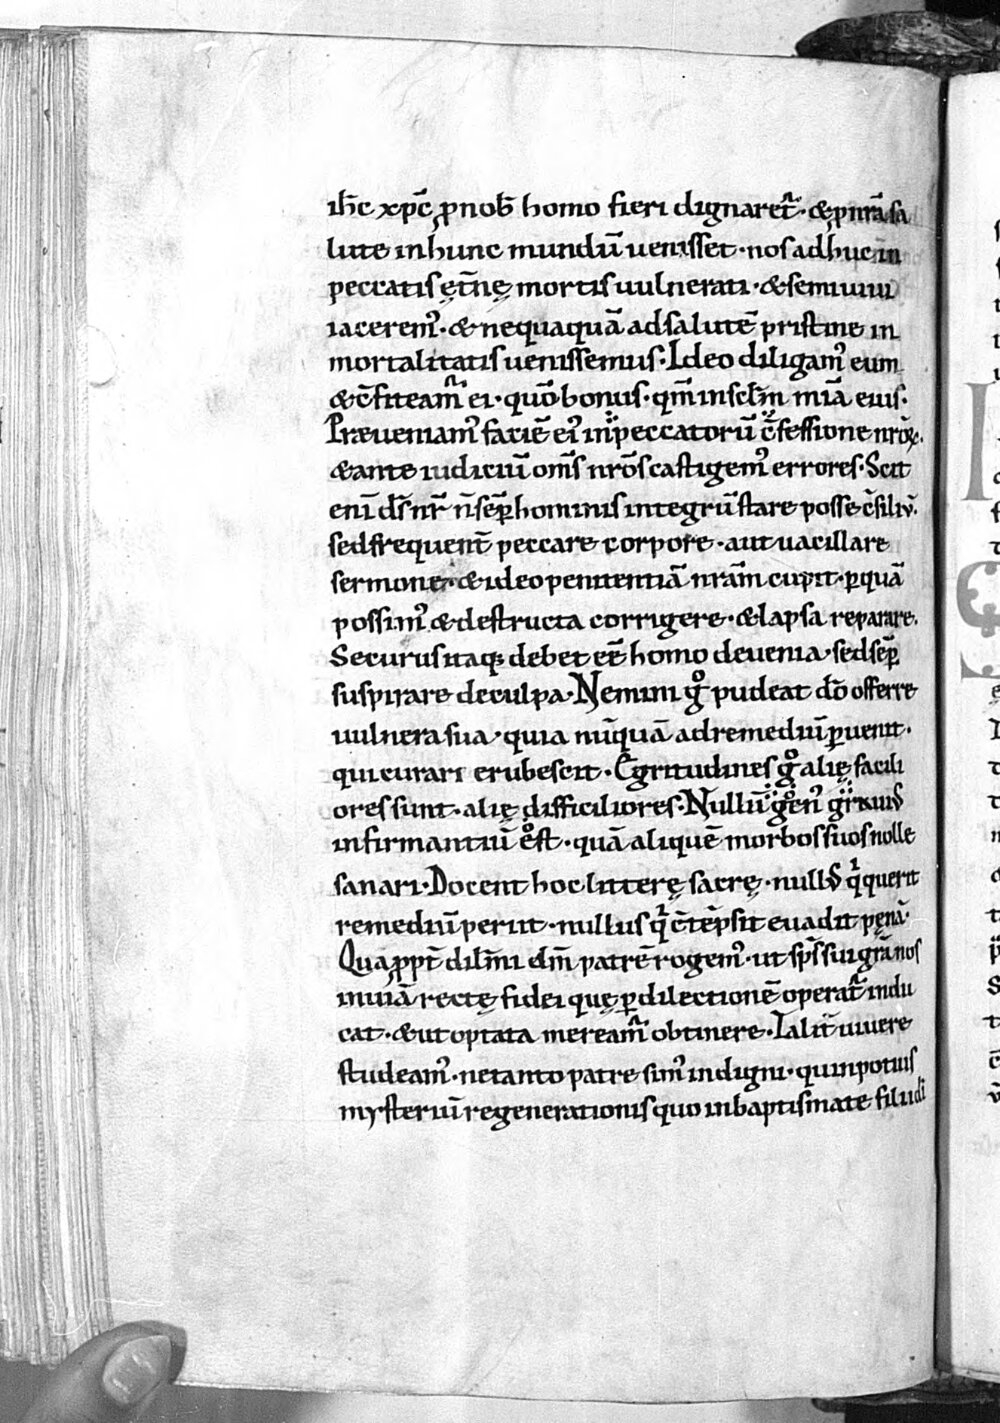 ihc xpc ꝓ nob homo fieri dignaret̃ · & ꝓ nr̃a sa
lute in hunc mundū uenisset · nos adhuc in
peccatis ęt̃nę mortis uulnerati · & semiuiui
iacerem᾿ · & nequaquā ad salutē pristine in
mortalitatis uenissemus · Ideo diligam᾿ eum
& c̄fiteam̃ ei · quō bonus · qm̄ in sc̄lm mīa eius ·
Præueniam᾿ faciē ei᾿ in peccatorū c̄fessione nr̃oꝝ ·
& ante iudiciū om̄s nr̃os castigem᾿ errores · Scit
enī ds̄ nr̃ n̄ semꝑ hominis integrū stare posse c̄siliū ·
sed frequent̄ peccare corpore · aut uacillare
sermone · & ideo penitentiā nr̃am cupit · ꝑ quā
possim᾿ & destructa corrigere · & lapsa reparare ·
Securus itaq; debet eē homo de uenia · sed semꝑ
suspirare de culpa · Nemini gͦ pudeat dō offerre
uulnera sua · quia nūquā ad remediū ꝑuenit ·
qui curari erubescit · Egritudines gͦ alię facili
ores sunt · alię difficiliores · Nullū gͦ gen᾿ grauius
infirmantiū est · quā aliquē morbos suos nolle
sanari · Docent hoc litterę sacrę · nullus qͥ querit
remediū perit · nullus qͥ c̄tēpsit euadit pęnā ·
Quaꝓpt̄ dilm̄i dm̄ patrē rogem᾿ · ut sps̄ sui gr̄a nos
in uiā rectę fidei quę ꝑ dilectionē operat̃ indu
cat · & ut optata meream̃ obtinere · Talit̄ uiuere
studeam᾿ · ne tanto patre sim᾿ indigni · quin potius
mysteriū regenerationis quo in baptismate filii di